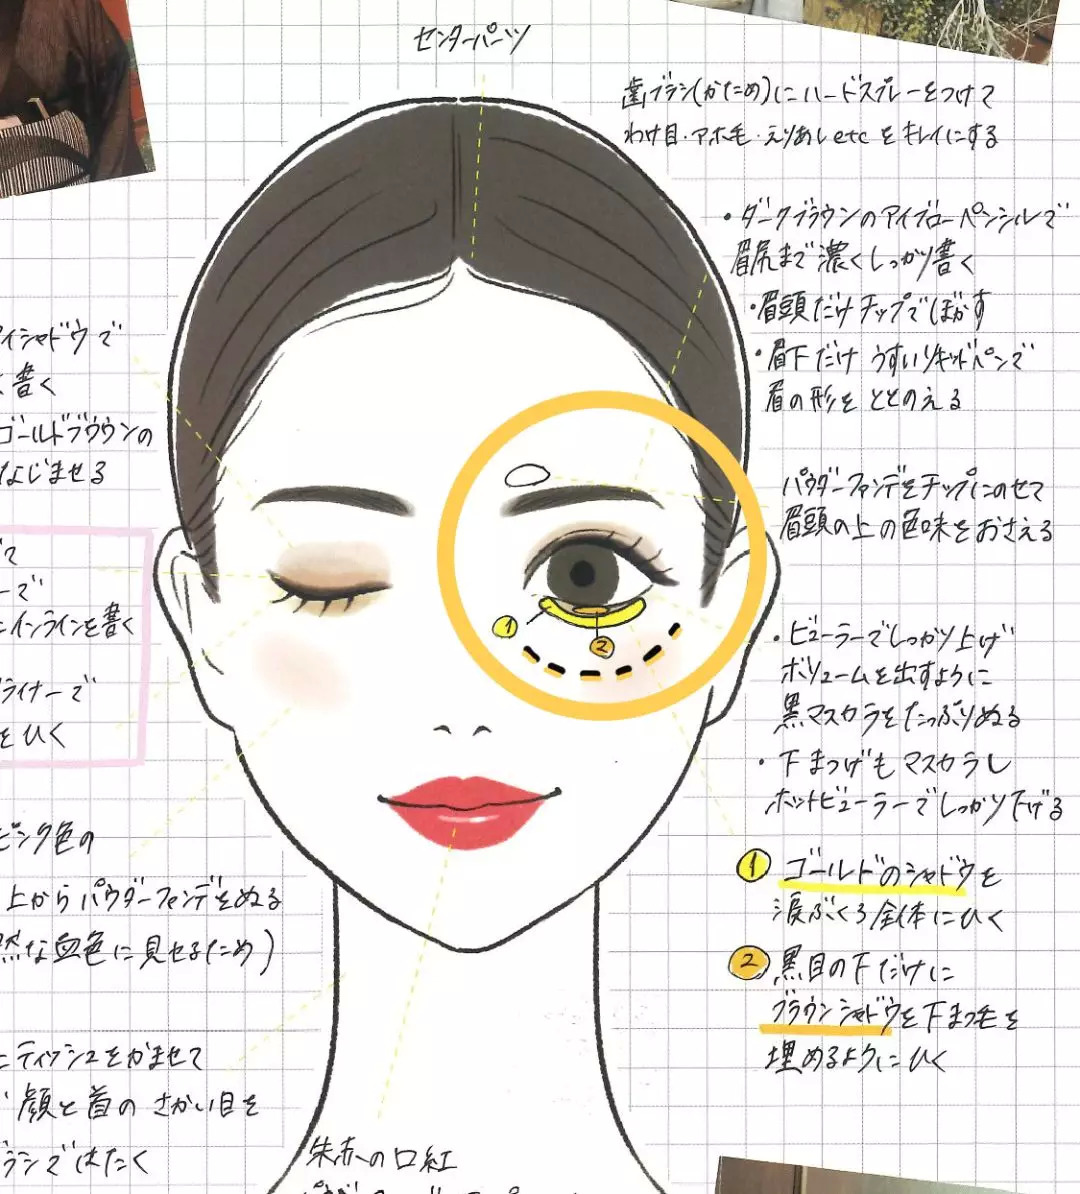 センターパーツ
歯ブラシ(かため)にハードスプレーをつけて
わけ目・アホ毛・えりあしetcをキレイにする
・ダークブラウンのアイブローペンシルで
眉尻まで濃くしっかり書く
・眉頭だけチップでぼかす
・眉下だけうすいリキッドペンで
眉の形をととのえる
パウダーファンデをチップにのせて
眉頭の上の色味をおさえる
・ビューラーでしっかり上げ
ボリュームを出すように
黒マスカラをたっぷりぬる
・下まつげもマスカラし
ホットビューラーでしっかり下げる
① ゴールドのシャドウを
涙ぶくろ全体にひく
② 黒目の下だけに
ブラウンシャドウを下まつ毛を
埋めるようにひく
①
②
イシャドウで
書く
ゴールドブラウンの
なじませる
て
ーで
インラインを書く
ライナーで
をひく
ピンク色の
上からパウダーファンデをぬる
然な血色に見せるため)
にティッシュをかませて
顔と首のさかい目を
ラシではたく
朱赤の口紅